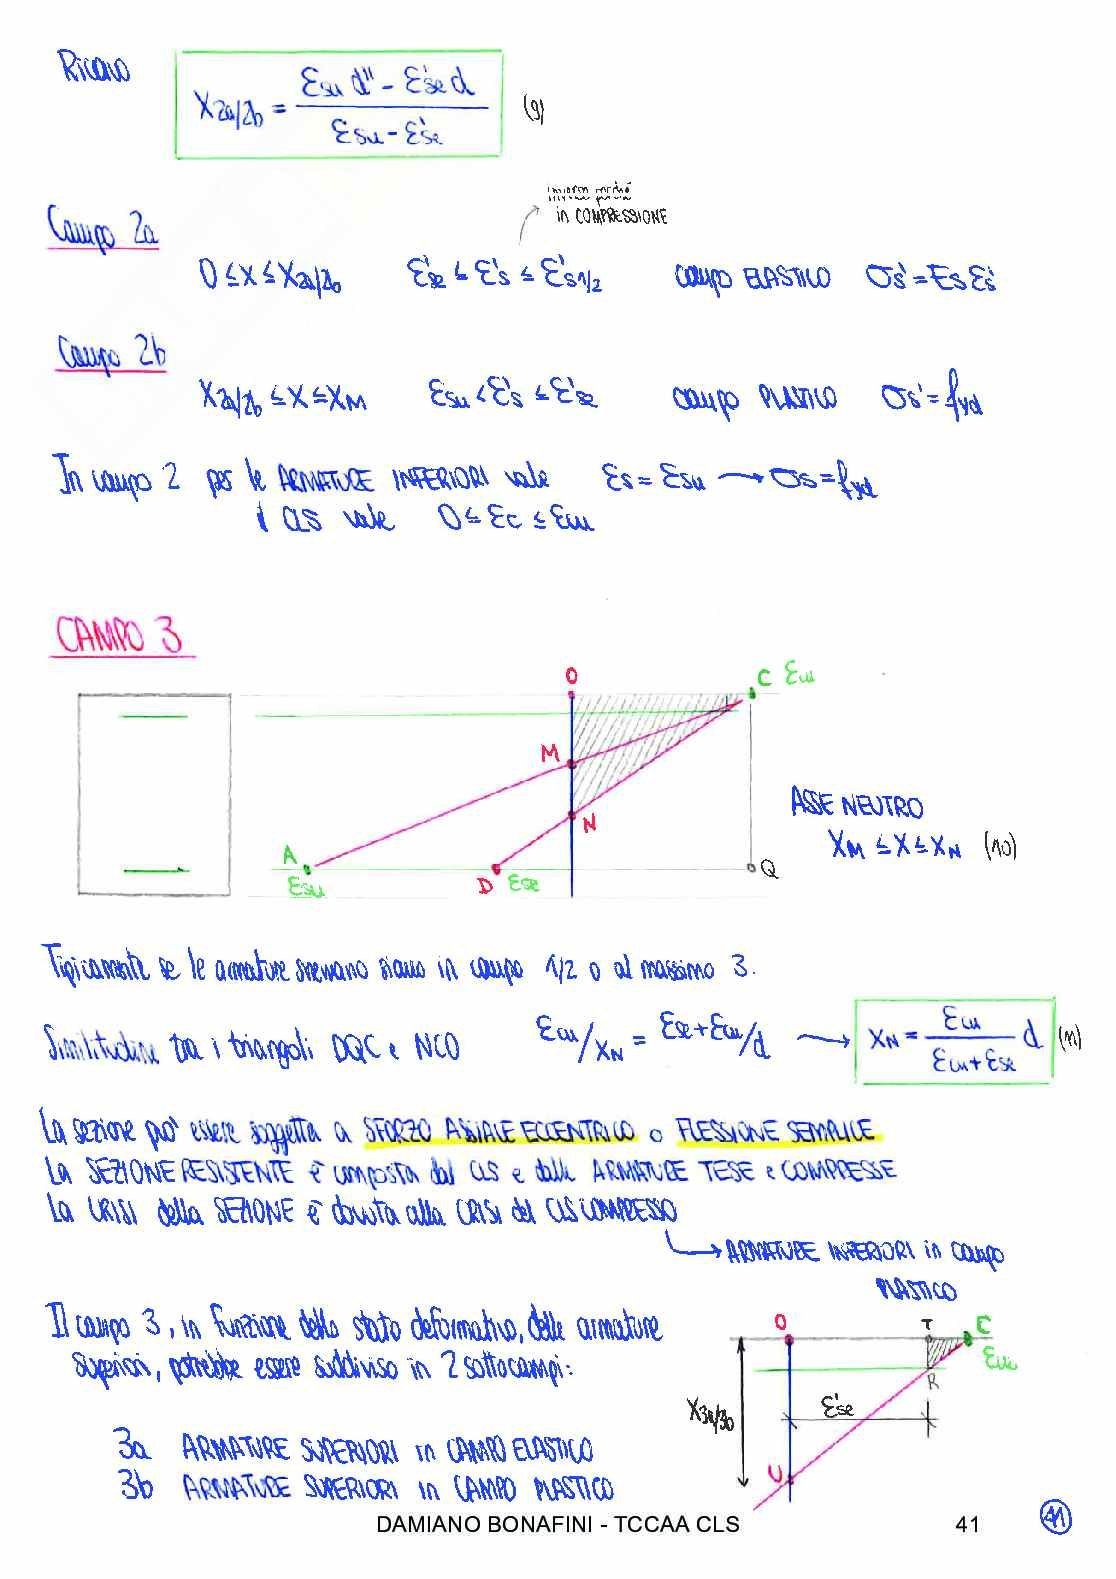 Ricavo X2a/2b = (Ɛsu d" - Ɛ'se d) / (Ɛsu - Ɛ'se) (9)
inverso perché
in COMPRESSIONE
Campo 2a
0 ≤ X ≤ X2a/2b Ɛ'se ≤ Ɛ's ≤ Ɛ's1/2 campo ELASTICO σs' = Es Ɛ's
Campo 2b
X2a/2b ≤ X ≤ XM Ɛsu < Ɛ's ≤ Ɛ'se campo PLASTICO σs' = fyd
In campo 2 per le ARMATURE INFERIORI vale Ɛs = Ɛsu → σs = fyd
il CLS vale 0 ≤ Ɛc ≤ Ɛcu
CAMPO 3
O C Ɛcu
M
N
ASSE NEUTRO
XM ≤ X ≤ XN (10)
A Ɛsu D Ɛse Q
Tipicamente se le armature snervano siamo in campo 1/2 o al massimo 3.
Similitudine tra i triangoli DQC e NCO Ɛcu/XN = Ɛse+Ɛcu/d → XN = Ɛcu / (Ɛcu + Ɛse) d (11)
La sezione può essere soggetta a SFORZO ASSIALE ECCENTRICO o FLESSIONE SEMPLICE
La SEZIONE RESISTENTE è composta dal CLS e dalle ARMATURE TESE e COMPRESSE
La CRISI della SEZIONE è dovuta alla CRISI del CLS COMPRESSO
→ ARMATURE INFERIORI in campo
PLASTICO
Il campo 3, in funzione dello stato deformativo, delle armature
superiori, potrebbe essere suddiviso in 2 sottocampi:
3a ARMATURE SUPERIORI in CAMPO ELASTICO
3b ARMATURE SUPERIORI in CAMPO PLASTICO
O T C
Ɛcu
R
X3a/3b Ɛ'se
U
DAMIANO BONAFINI - TCCAA CLS 41
41